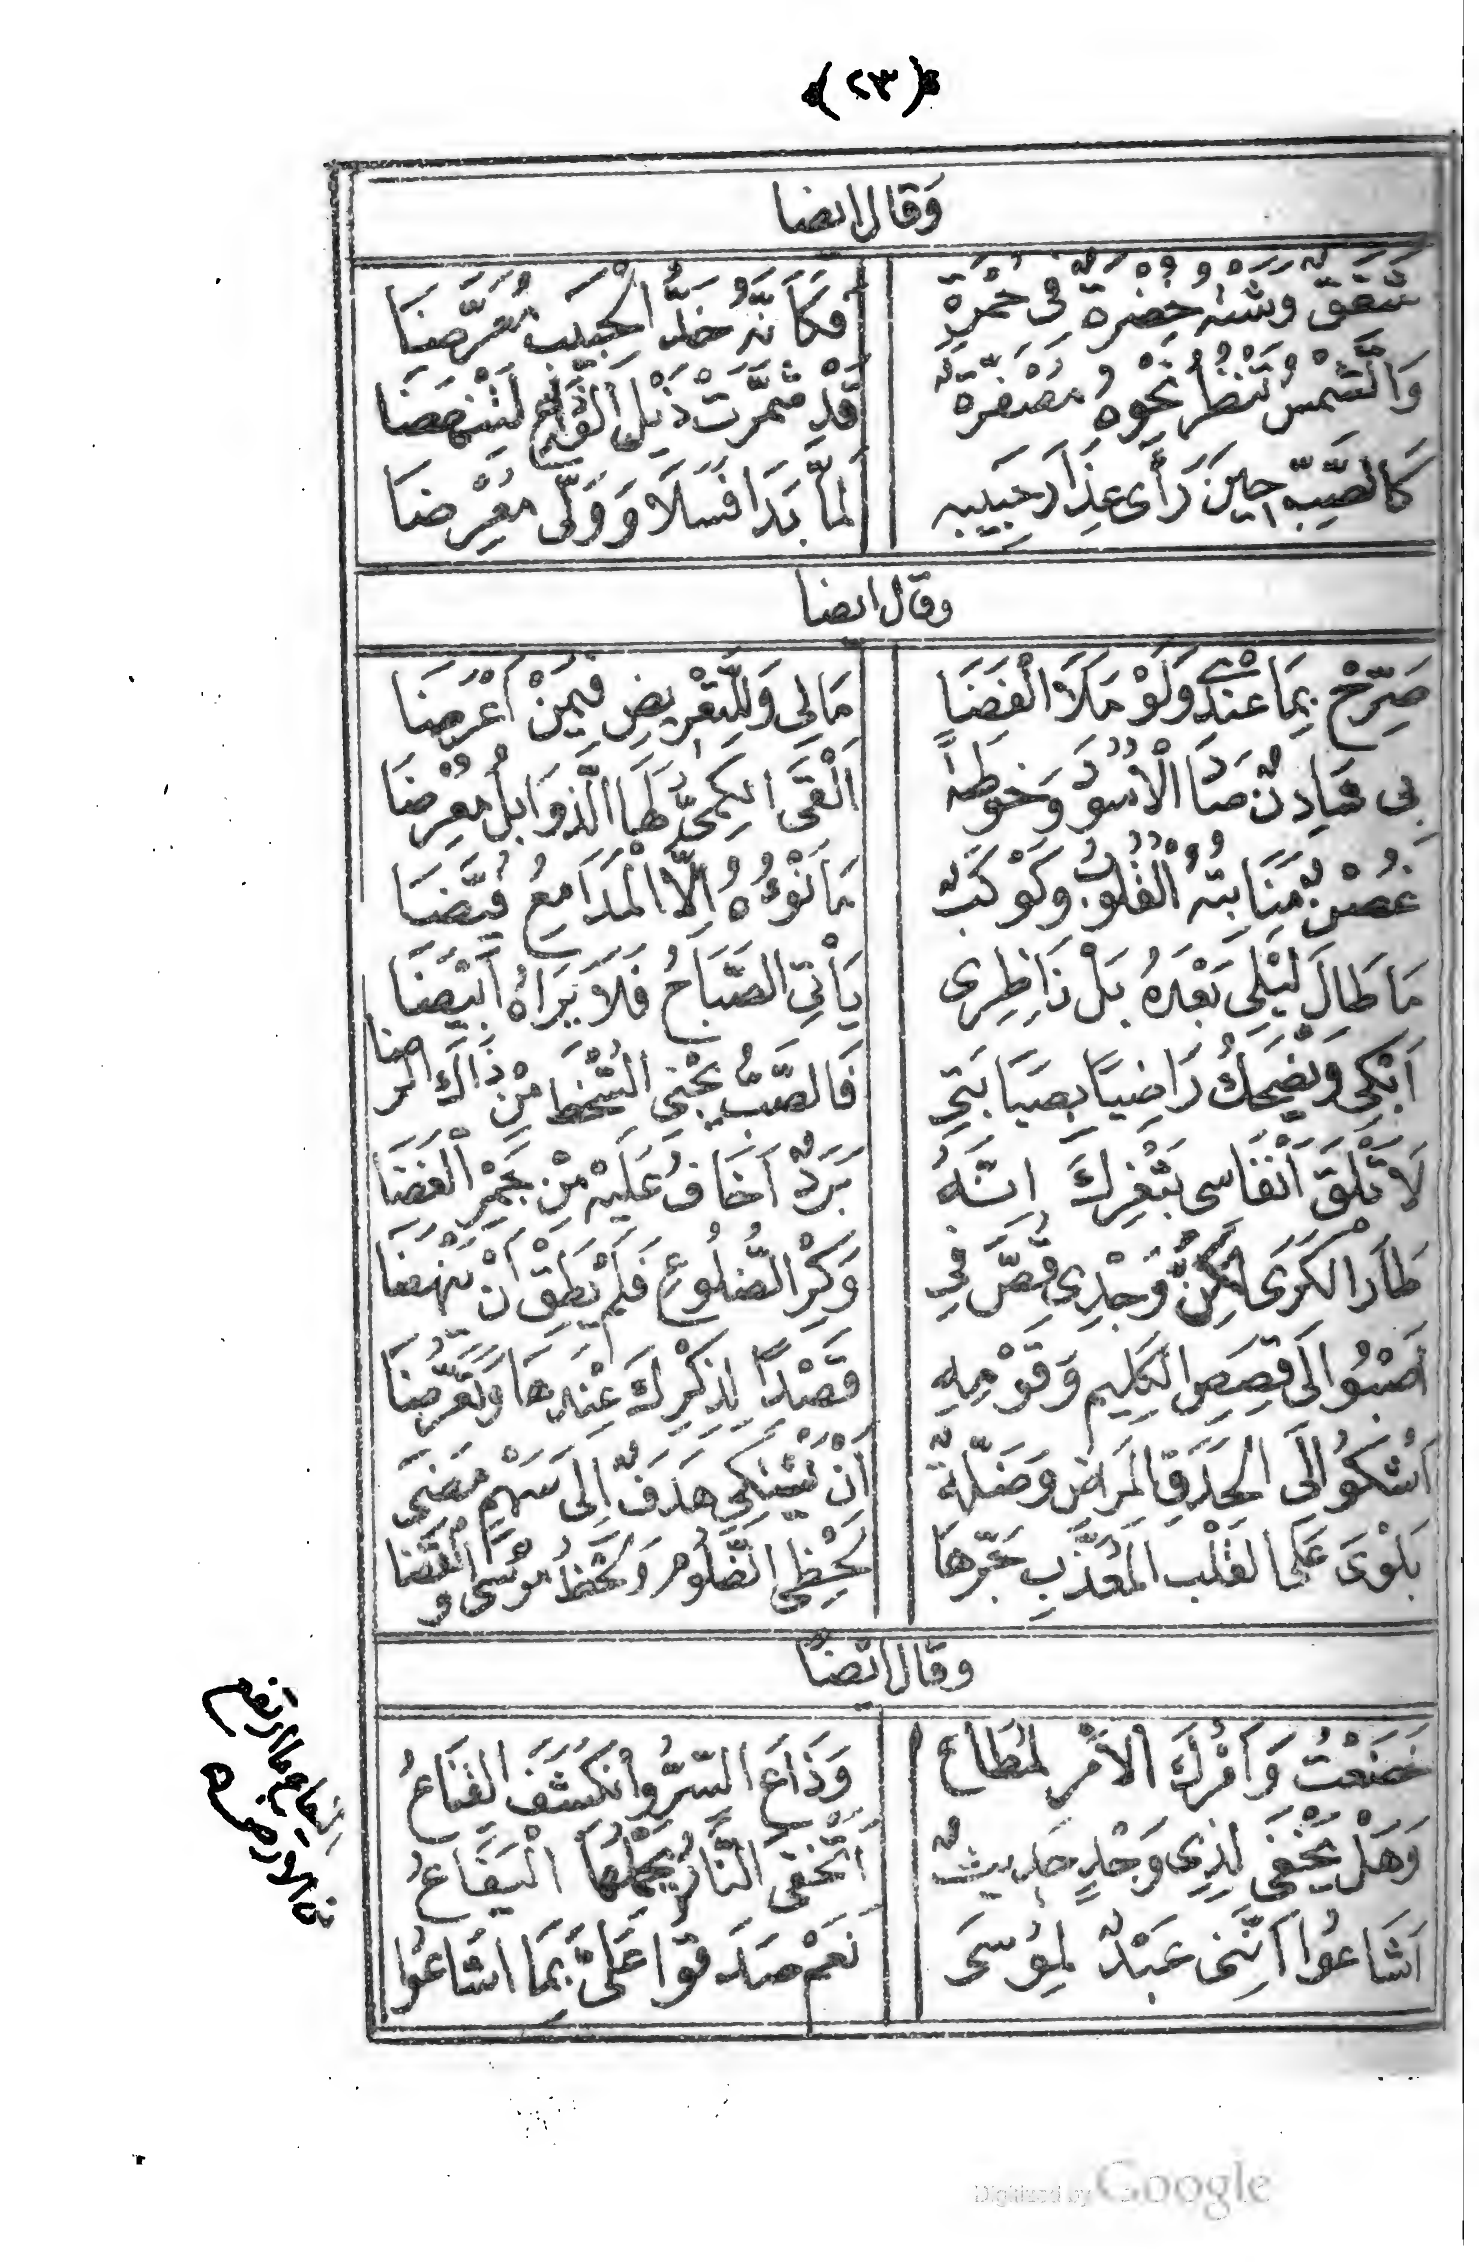 (٢٣)
وَقَالَ ايضا
شَفَقٌ وَشَتْهُ خُضْرَةٌ فِى حُمْرَةٍ فَكَأَنَّهُ خَدُّ الْحَبِيبِ مُعَرَّضَا
وَالشَّمْسُ تَنْظُرُ نَحْوَهُ مُصْفَرَّةً قَدْ شَمَّرَتْ ذَيْلَ الْقِنَاعِ لِتَنْهَضَا
كَالصَّبِّ حِينَ رَأَى عِذَارَ حَبِيبِهِ لَمَّا بَدَا فَسَلَا وَوَلَّى مُعْرِضَا
وقال ايضا
صَرِّحْ بِمَا عِنْدِى وَلَوْ مَلَأَ الْفَضَا مَالِى وَلِلتَّعْرِيضِ فِيمَنْ أَعْرَضَا
بِى شَادِنٌ صَادَ الْأُسُودَ وَخُوطَةٌ أَلْقَى الْكَمِىُّ لَهَا الذَّوَابِلَ مُعْرِضَا
غُصْنٌ مَنَابِتُهُ الْقُلُوبُ وَكَوْكَبٌ مَا نَوْءُهُ إِلَّا الْمَدَامِعُ فُيَّضَا
مَا طَالَ لَيْلَى بَعْدَهُ بَلْ نَاظِرِى يَأْتِى الصَّبَاحُ فَلَا يَرَاهُ أَبْيَضَا
أَبْكِى وَيَضْحَكُ رَاضِيًا بِصَبَابَتِى فَالصَّبُّ يَجْنِى السُّخْطَ مِنْ ذَاكَ الرضا
لَا تَلْقَ أَنْفَاسِى بِثَغْرِكَ إِنَّهُ بَرَدٌ أَخَافُ عَلَيْهِ مِنْ جَمْرِ الْغَضَا
طَارَ الْكَرَى لَكِنَّ وَجْدِى قُصَّ فِى وَكْرِ الضُّلُوعِ فَلَمْ يُطِقْ أَنْ يَنْهَضَا
أَصْبُو إِلَى قِصَصِ الْكَلِيمِ وَقَوْمِهِ قَصْدًا لِذِكْرِكَ عِنْدَهَا وَتَعَرُّضَا
أَشْكُو إِلَى الْحَدَقِ الْمِرَاضِ وَضَلَّةٌ أَنْ يَشْتَكِى هَدَفٌ إِلَى سَهْمٍ مَضَى
بَلْوَى عَلَى الْقَلْبِ الْمُعَذَّبِ جَرَّهَا لَحْظِى الظَّلُومُ وَلَحْظُ مُوسَى وَالْقَضَا
وقال ايضا
خَضَعْتُ وَأَمْرُكَ الْأَمْرُ الْمُطَاعُ وَذَاعَ السِّرُّ وَانْكَشَفَ الْقِنَاعُ
وَهَلْ يَخْفَى لِذِى وَجْدٍ حَدِيثٌ أَتَخْفَى النَّارُ يَحْمِلُهَا الْيَفَاعُ
أَشَاعُوا أَنَّنِى عَبْدٌ لِمُوسَى نَعَمْ صَدَقُوا عَلَىَّ بِمَا أَشَاعُوا
اليفاع ما ارتفع
من الارض
Digitized by Google